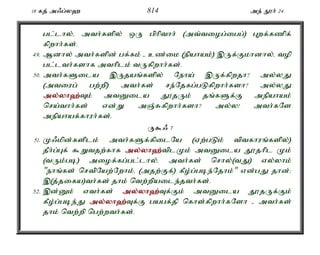 18 கத் அஃப்லஹ 814 அந் நூர் 24
பட்டால், அவர்களில் ஒரு பிரிவார் (அவ்வழைப்பைப்) புறக்கணிக்
கிறார்கள்.
49. ஆனால் அவர்களின் பக்கம் - உண்மை (நியாயம்) இருக்குமானால், வழி
பட்டவர்களாக அவரிடம் வருகிறார்கள்.
50. அவர்களுடைய இருதயங்களில் நோய் இருக்கிறதா? அல்லது
(அவரைப் பற்றி) அவர்கள் சந்தேகப்படுகிறார்களா? அல்லது
அல்லாஹ்வும் அவனுடைய தூதரும் தங்களுக்கு அநியாயம்
செய்வார்கள் என்று அஞ்சுகிறார்களா? அல்ல! அவர்களே
அநியாயக்காரர்கள்.
ருகூஃ 7
51. முஃமின்களிடம் அவர்களுக்கிடையே (ஏற்படும் விவகாரங்களில்)
தீர்ப்புக் கூறுவதற்காக அல்லாஹ்விடமும் அவனுடைய தூதரிட மும்
(வரும்படி) அழைக்கப்பட்டால். அவர்கள் சொல்(வது) எல்லாம்
"நாங்கள் செவியேற்றோம், (அதற்குக்) கீழ்ப்படிந்தோம்" என்பது தான்;
இ(த்தகைய)வர்கள் தாம் வெற்றியடைந்தவர்கள்.
52. இன்னும் எவர்கள் அல்லாஹ்வுக்கும் அவனுடைய தூதருக்கும்
கீழ்ப்படிந்து அல்லாஹ்வுக்கு பயபக்தி கொள்கிறார்களோ - அவர்கள்
தாம் வெற்றி பெற்றவர்கள்.